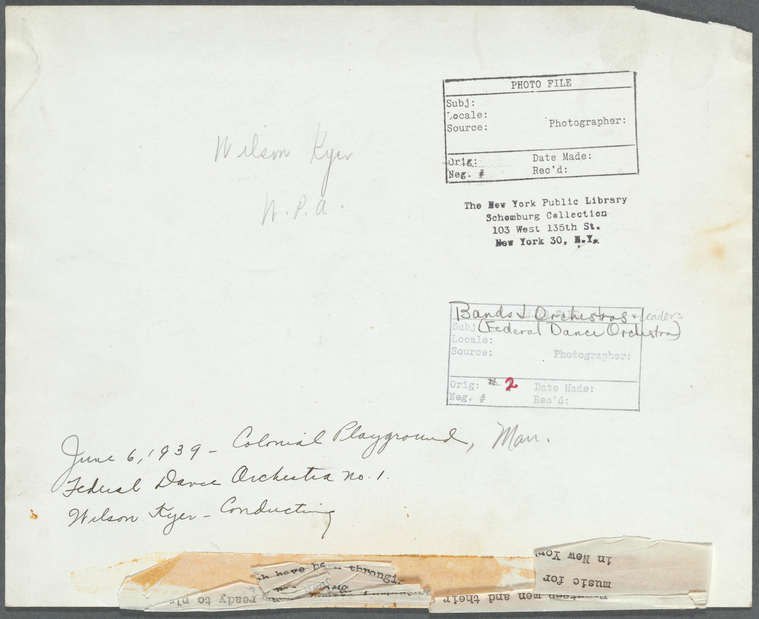 Wilson Kyer
W.P.A.
PHOTO FILE
Subj:
Locale:
Source: Photographer:
Orig: Date Made:
Neg. # Rec'd:
The New York Public Library
Schomburg Collection
103 West 135th St.
New York 30, N.Y.
Bands & Orchestras & leaders
Subj (Federal Dance Orchestra)
Locale:
Source: Photographer:
Orig: # 2 Date Made:
Neg. # Rec'd:
June 6, 1939 - Colonial Playground, Man.
Federal Dance Orchestra No. 1.
Wilson Kyer - Conducting
in New Yo
music for
men and their
have be n throngi
ready to pl